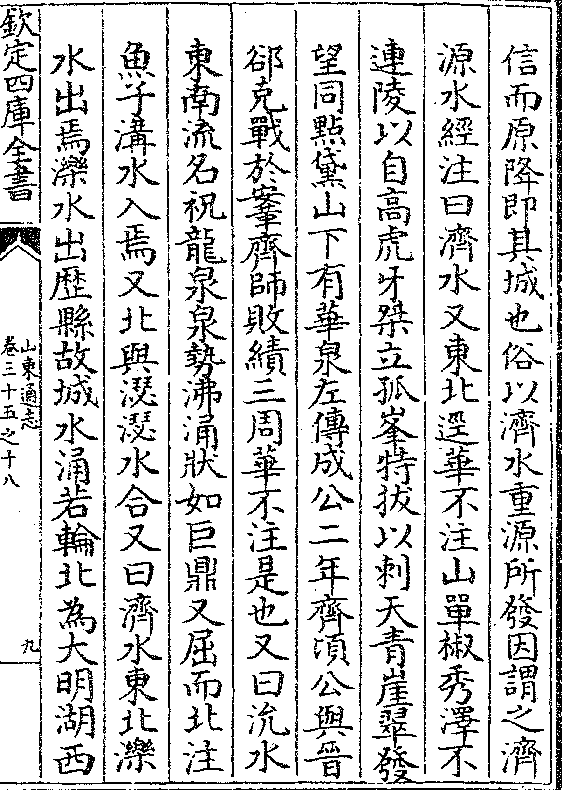 信而原降即其城也俗以濟水重源所發因謂之濟
源水經注曰濟水又東北逕華不注山單椒秀澤不
連陵以自高虎牙桀立孤峯特拔以刺天青崖翠發
望同點黛山下有華泉左傳成公二年齊頃公與晉
郤克戰於鞌齊師敗績三周華不注是也又曰沇水
東南流名祝龍泉泉勢沸涌狀如巨鼎又屈而北注
魚子溝水入焉又北與瀴瀴水合又曰濟水東北濼
水出焉濼水出歷縣故城水涌若輪北為大明湖西
欽定四庫全書
山東通志
卷三十五之十八
九